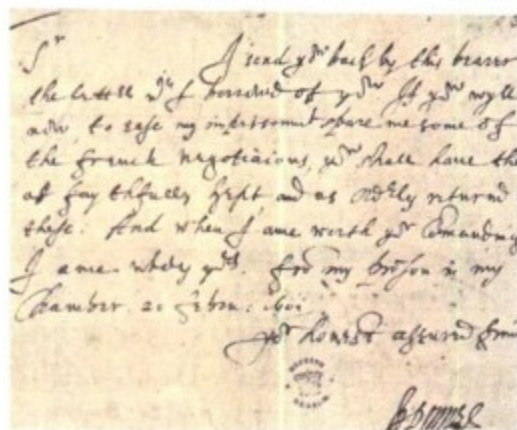 Sr
I send yow back by this bearer
the letters wch I borrowed of yow. If yow wyll
now, to ease my imprisonment, spare me some of
the French negotiacions, yow shall have them
as faythfully kept, and as orderly returned
these. And when I ame worth yor Comanding
I ame wholy yors. From my Prison in my
Chamber. 20 Febru: 1601
yor honest assured frind
JDonne